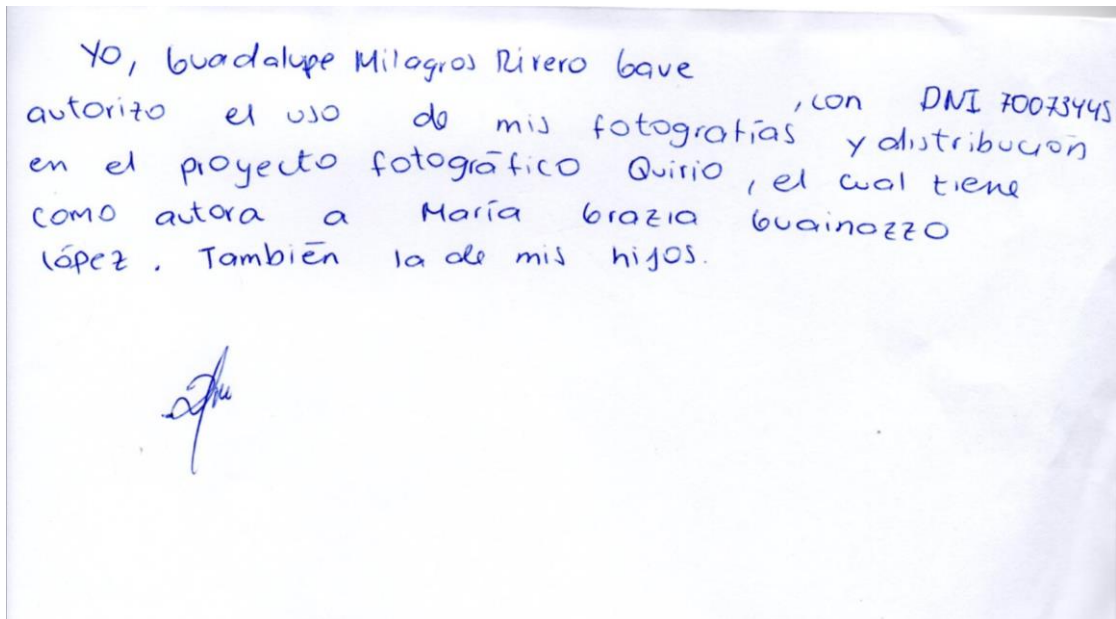 Yo, Guadalupe Milagros Rivero Gave
, con DNI 70073445
autorizo el uso de mis fotografías y distribución
en el proyecto fotográfico Quirio, el cual tiene
como autora a María Grazia Guainazzo
López. También la de mis hijos.